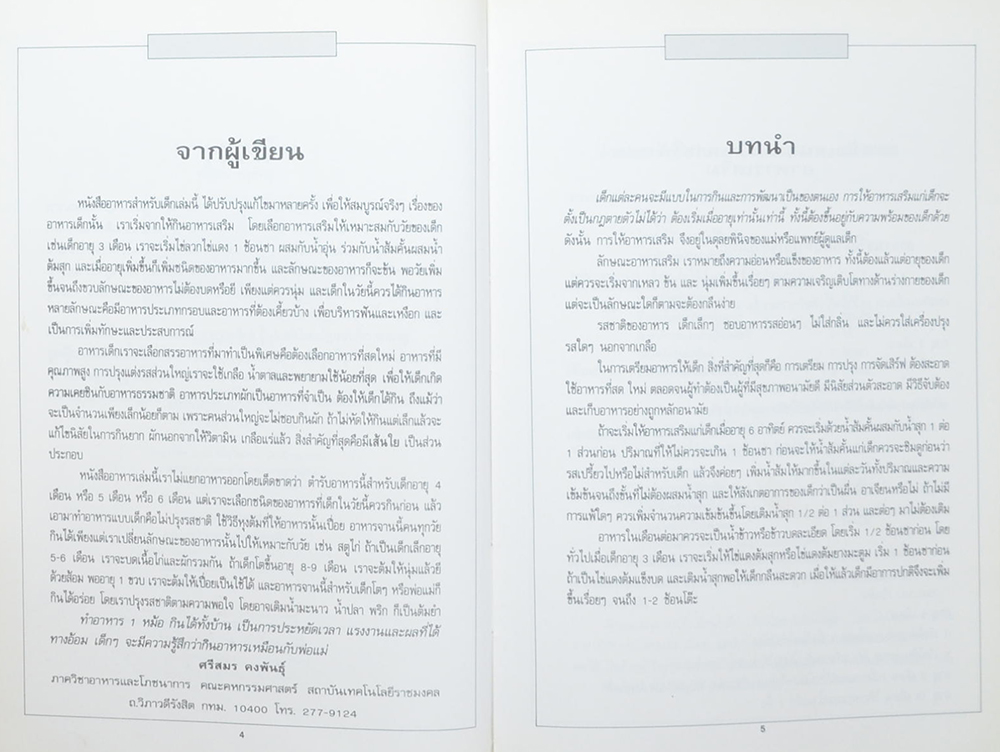 จากผู้เขียน
หนังสืออาหารสำหรับเด็กเล่มนี้ ได้ปรับปรุงแก้ไขมาหลายครั้ง เพื่อให้สมบูรณ์จริงๆ เรื่องของ
อาหารเด็กนั้น เราเริ่มจากให้กินอาหารเสริม โดยเลือกอาหารเสริมให้เหมาะสมกับวัยของเด็ก
เช่นเด็กอายุ 3 เดือน เราจะเริ่มไข่ลวกไข่แดง 1 ช้อนชา ผสมกับน้ำอุ่น ร่วมกับน้ำส้มคั้นผสมน้ำ
ต้มสุก และเมื่ออายุเพิ่มขึ้นก็เพิ่มชนิดของอาหารมากขึ้น และลักษณะของอาหารก็จะข้น พอวัยเพิ่ม
ขึ้นจนถึงขวบลักษณะของอาหารไม่ต้องบดหรือยี เพียงแต่ควรนุ่ม และเด็กในวัยนี้ควรได้กินอาหาร
หลายลักษณะคือมีอาหารประเภทกรอบและอาหารที่ต้องเคี้ยวบ้าง เพื่อบริหารฟันและเหงือก และ
เป็นการเพิ่มทักษะและประสบการณ์
อาหารเด็กเราจะเลือกสรรอาหารที่มาทำเป็นพิเศษคือต้องเลือกอาหารที่สดใหม่ อาหารที่มี
คุณภาพสูง การปรุงแต่งรสส่วนใหญ่เราจะใช้เกลือ น้ำตาลและพยายามใช้น้อยที่สุด เพื่อให้เด็กเกิด
ความเคยชินกับอาหารธรรมชาติ อาหารประเภทผักเป็นอาหารที่จำเป็น ต้องให้เด็กได้กิน ถึงแม้ว่า
จะเป็นจำนวนเพียงเล็กน้อยก็ตาม เพราะคนส่วนใหญ่จะไม่ชอบกินผัก ถ้าไม่หัดให้กินแต่เล็กแล้วจะ
แก้ไขนิสัยในการกินยาก ผักนอกจากให้วิตามิน เกลือแร่แล้ว สิ่งสำคัญที่สุดคือมีเส้นใย เป็นส่วน
ประกอบ
หนังสืออาหารเล่มนี้เราไม่แยกอาหารออกโดยเด็ดขาดว่า ตำรับอาหารนี้สำหรับเด็กอายุ 4
เดือน หรือ 5 เดือน หรือ 6 เดือน แต่เราจะเลือกชนิดของอาหารที่เด็กในวัยนี้ควรกินก่อน แล้ว
เอามาทำอาหารแบบเด็กคือไม่ปรุงรสชาติ ใช้วิธีหุงต้มที่ให้อาหารนั้นเปื่อย อาหารจานนี้คนทุกวัย
กินได้เพียงแต่เราเปลี่ยนลักษณะของอาหารนั้นไปให้เหมาะกับวัย เช่น สตูไก่ ถ้าเป็นเด็กเล็กอายุ
5-6 เดือน เราจะบดเนื้อไก่และผักรวมกัน ถ้าเด็กโตขึ้นอายุ 8-9 เดือน เราจะต้มให้นุ่มแล้วยี
ด้วยส้อม พออายุ 1 ขวบ เราจะต้มให้เปื่อยเป็นใช้ได้ และอาหารจานนี้สำหรับเด็กโตๆ หรือพ่อแม่ก็
กินได้อร่อย โดยเราปรุงรสชาติตามความพอใจ โดยอาจเติมน้ำมะนาว น้ำปลา พริก ก็เป็นต้มยำ
ทำอาหาร 1 หม้อ กินได้ทั้งบ้าน เป็นการประหยัดเวลา แรงงานและผลที่ได้
ทางอ้อม เด็กๆ จะมีความรู้สึกว่ากินอาหารเหมือนกับพ่อแม่
ศรีสมร คงพันธุ์
ภาควิชาอาหารและโภชนาการ คณะคหกรรมศาสตร์ สถาบันเทคโนโลยีราชมงคล
ถ.วิภาวดีรังสิต กทม. 10400 โทร. 277-9124
4
บทนำ
เด็กแต่ละคนจะมีแบบในการกินและการพัฒนาเป็นของตนเอง การให้อาหารเสริมแก่เด็กจะ
ตั้งเป็นกฎตายตัวไม่ได้ว่า ต้องเริ่มเมื่ออายุเท่านั้นเท่านี้ ทั้งนี้ต้องขึ้นอยู่กับความพร้อมของเด็กด้วย
ดังนั้น การให้อาหารเสริม จึงอยู่ในดุลยพินิจของแม่หรือแพทย์ผู้ดูแลเด็ก
ลักษณะอาหารเสริม เราหมายถึงความอ่อนหรือแข็งของอาหาร ทั้งนี้ต้องแล้วแต่อายุของเด็ก
แต่ควรจะเริ่มจากเหลว ข้น และ นุ่มเพิ่มขึ้นเรื่อยๆ ตามความเจริญเติบโตทางด้านร่างกายของเด็ก
แต่จะเป็นลักษณะใดก็ตามจะต้องกลืนง่าย
รสชาติของอาหาร เด็กเล็กๆ ชอบอาหารรสอ่อนๆ ไม่ใส่กลิ่น และไม่ควรใส่เครื่องปรุง
รสใดๆ นอกจากเกลือ
ในการเตรียมอาหารให้เด็ก สิ่งที่สำคัญที่สุดก็คือ การเตรียม การปรุง การจัดเสิร์ฟ ต้องสะอาด
ใช้อาหารที่สด ใหม่ ตลอดจนผู้ทำต้องเป็นผู้ที่มีสุขภาพอนามัยดี มีนิสัยส่วนตัวสะอาด มีวิธีจับต้อง
และเก็บอาหารอย่างถูกหลักอนามัย
ถ้าจะเริ่มให้อาหารเสริมแก่เด็กเมื่ออายุ 6 อาทิตย์ ควรจะเริ่มด้วยน้ำส้มคั้นผสมกับน้ำสุก 1 ต่อ
1 ส่วนก่อน ปริมาณที่ให้ไม่ควรจะเกิน 1 ช้อนชา ก่อนจะให้น้ำส้มคั้นแก่เด็กควรจะชิมดูก่อนว่า
รสเปรี้ยวไปหรือไม่สำหรับเด็ก แล้วจึงค่อยๆ เพิ่มน้ำส้มให้มากขึ้นในแต่ละวันทั้งปริมาณและความ
เข้มข้นจนถึงขั้นที่ไม่ต้องผสมน้ำสุก และให้สังเกตอาการของเด็กว่าเป็นผื่น อาเจียนหรือไม่ ถ้าไม่มี
การแพ้ใดๆ ควรเพิ่มจำนวนความเข้มข้นขึ้นโดยเติมน้ำสุก 1/2 ต่อ 1 ส่วน และต่อๆ มาไม่ต้องเติม
อาหารในเดือนต่อมาควรจะเป็นน้ำข้าวหรือข้าวบดละเอียด โดยเริ่ม 1/2 ช้อนชาก่อน โดย
ทั่วไปเมื่อเด็กอายุ 3 เดือน เราจะเริ่มให้ไข่แดงต้มสุกหรือไข่แดงต้มยางมะตูม เริ่ม 1 ช้อนชาก่อน
ถ้าเป็นไข่แดงต้มแข็งบด และเติมน้ำสุกพอให้เด็กกลืนสะดวก เมื่อให้แล้วเด็กมีอาการปกติจึงจะเพิ่ม
ขึ้นเรื่อยๆ จนถึง 1-2 ช้อนโต๊ะ
5